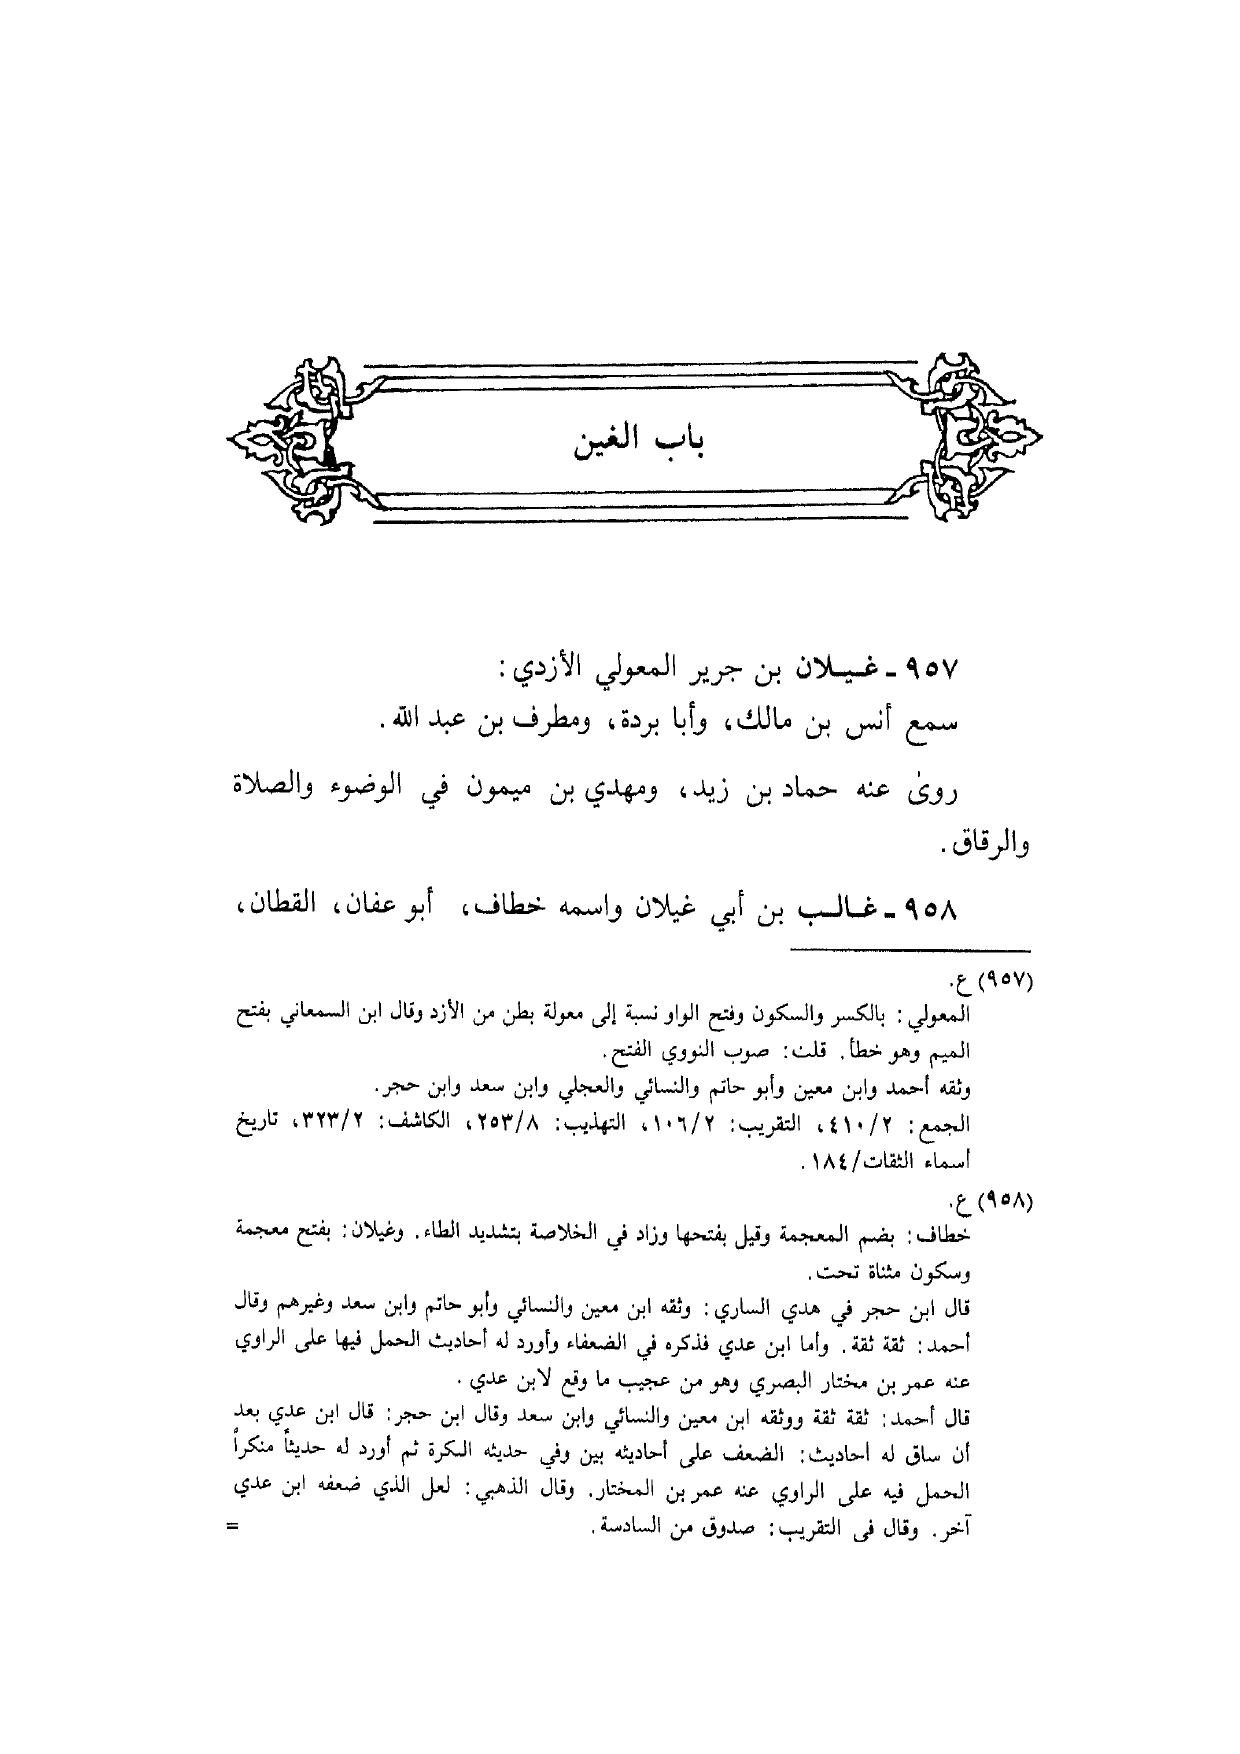 باب الغين
٩٥٧ ـ غيلان بن جرير المعولي الأزدي:
سمع أنس بن مالك، وأبا بردة، ومطرف بن عبد الله.
روىٰ عنه حماد بن زيد، ومهدي بن ميمون في الوضوء والصلاة
والرقاق.
٩٥٨ ـ غالب بن أبي غيلان واسمه خطاف، أبو عفان، القطان،
(٩٥٧) ع.
المعولي: بالكسر والسكون وفتح الواو نسبة إلى معولة بطن من الأزد وقال ابن السمعاني بفتح
الميم وهو خطأ. قلت: صوب النووي الفتح.
وثقه أحمد وابن معين وأبو حاتم والنسائي والعجلي وابن سعد وابن حجر.
الجمع: ٤١٠/٢، التقريب: ١٠٦/٢، التهذيب: ٢٥٣/٨، الكاشف: ٣٢٣/٢، تاريخ
أسماء الثقات/١٨٤.
(٩٥٨) ع.
خطاف: بضم المعجمة وقيل بفتحها وزاد في الخلاصة بتشديد الطاء. وغيلان: بفتح معجمة
وسكون مثناة تحت.
قال ابن حجر في هدي الساري: وثقه ابن معين والنسائي وأبو حاتم وابن سعد وغيرهم وقال
أحمد: ثقة ثقة. وأما ابن عدي فذكره في الضعفاء وأورد له أحاديث الحمل فيها على الراوي
عنه عمر بن مختار البصري وهو من عجيب ما وقع لابن عدي.
قال أحمد: ثقة ثقة ووثقه ابن معين والنسائي وابن سعد وقال ابن حجر: قال ابن عدي بعد
أن ساق له أحاديث: الضعف على أحاديثه بين وفي حديثه النكرة ثم أورد له حديثاً منكراً
الحمل فيه على الراوي عنه عمر بن المختار. وقال الذهبي: لعل الذي ضعفه ابن عدي
آخر. وقال في التقريب: صدوق من السادسة. =